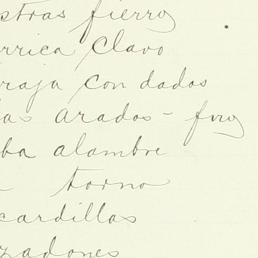 stras fierro
rrica clavo
raja con dados
as arados -
ba alambre
torno
cardillas
zadones